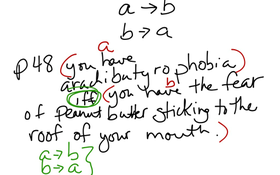 a → b
b → a
a
p 48 (you have
arachibutyrophobia)
b
iff (you have the fear
of peanut butter sticking to the
roof of your mouth.)
a → b }
b → a